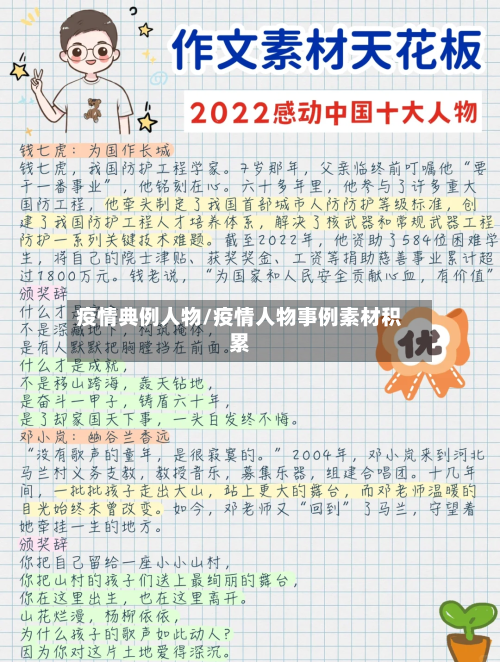 作文素材天花板
2022感动中国十大人物
钱七虎：为国作长城
钱七虎，我国防护工程学家。7岁那年，父亲临终前叮嘱他“要
干一番事业”，他铭刻在心。六十多年里，他参与了许多重大
国防工程，他牵头制定了我国首部城市人防防护等级标准，创
建了我国防护工程人才培养体系，解决了核武器和常规武器工程
防护一系列关键技术难题。截至2022年，他资助了584位困难学
生，将自己的院士津贴、获奖奖金、工资等捐助慈善事业累计超
过1800万元。钱老说，“为国家和人民安全贡献心血，有价值”
颁奖辞
什么才
疫情典例人物/疫情人物事例素材积
累
是有人默默把胸膛挡在前面。
优
什么才是成就，
不是移山跨海，轰天钻地，
是奋斗一甲子，铸盾六十年，
是了却家国天下事，一头白发终不悔。
邓小岚：幽谷兰香远
“没有歌声的童年，是很寂寞的。”2004年，邓小岚来到河北
马兰村义务支教，教授音乐，募集乐器，组建合唱团。十几年
间，一批批孩子走出大山，站上更大的舞台，而邓老师温暖的
目光始终未曾改变。如今，邓老师又“回到”了马兰，守望着
她牵挂一生的地方。
颁奖辞
你把自己留给一座小小山村，
你把山村的孩子们送上最绚丽的舞台，
你在这里出生，也在这里离开。
山花烂漫，杨柳依依，
为什么孩子的歌声如此动人？
因为你对这片土地爱得深沉。